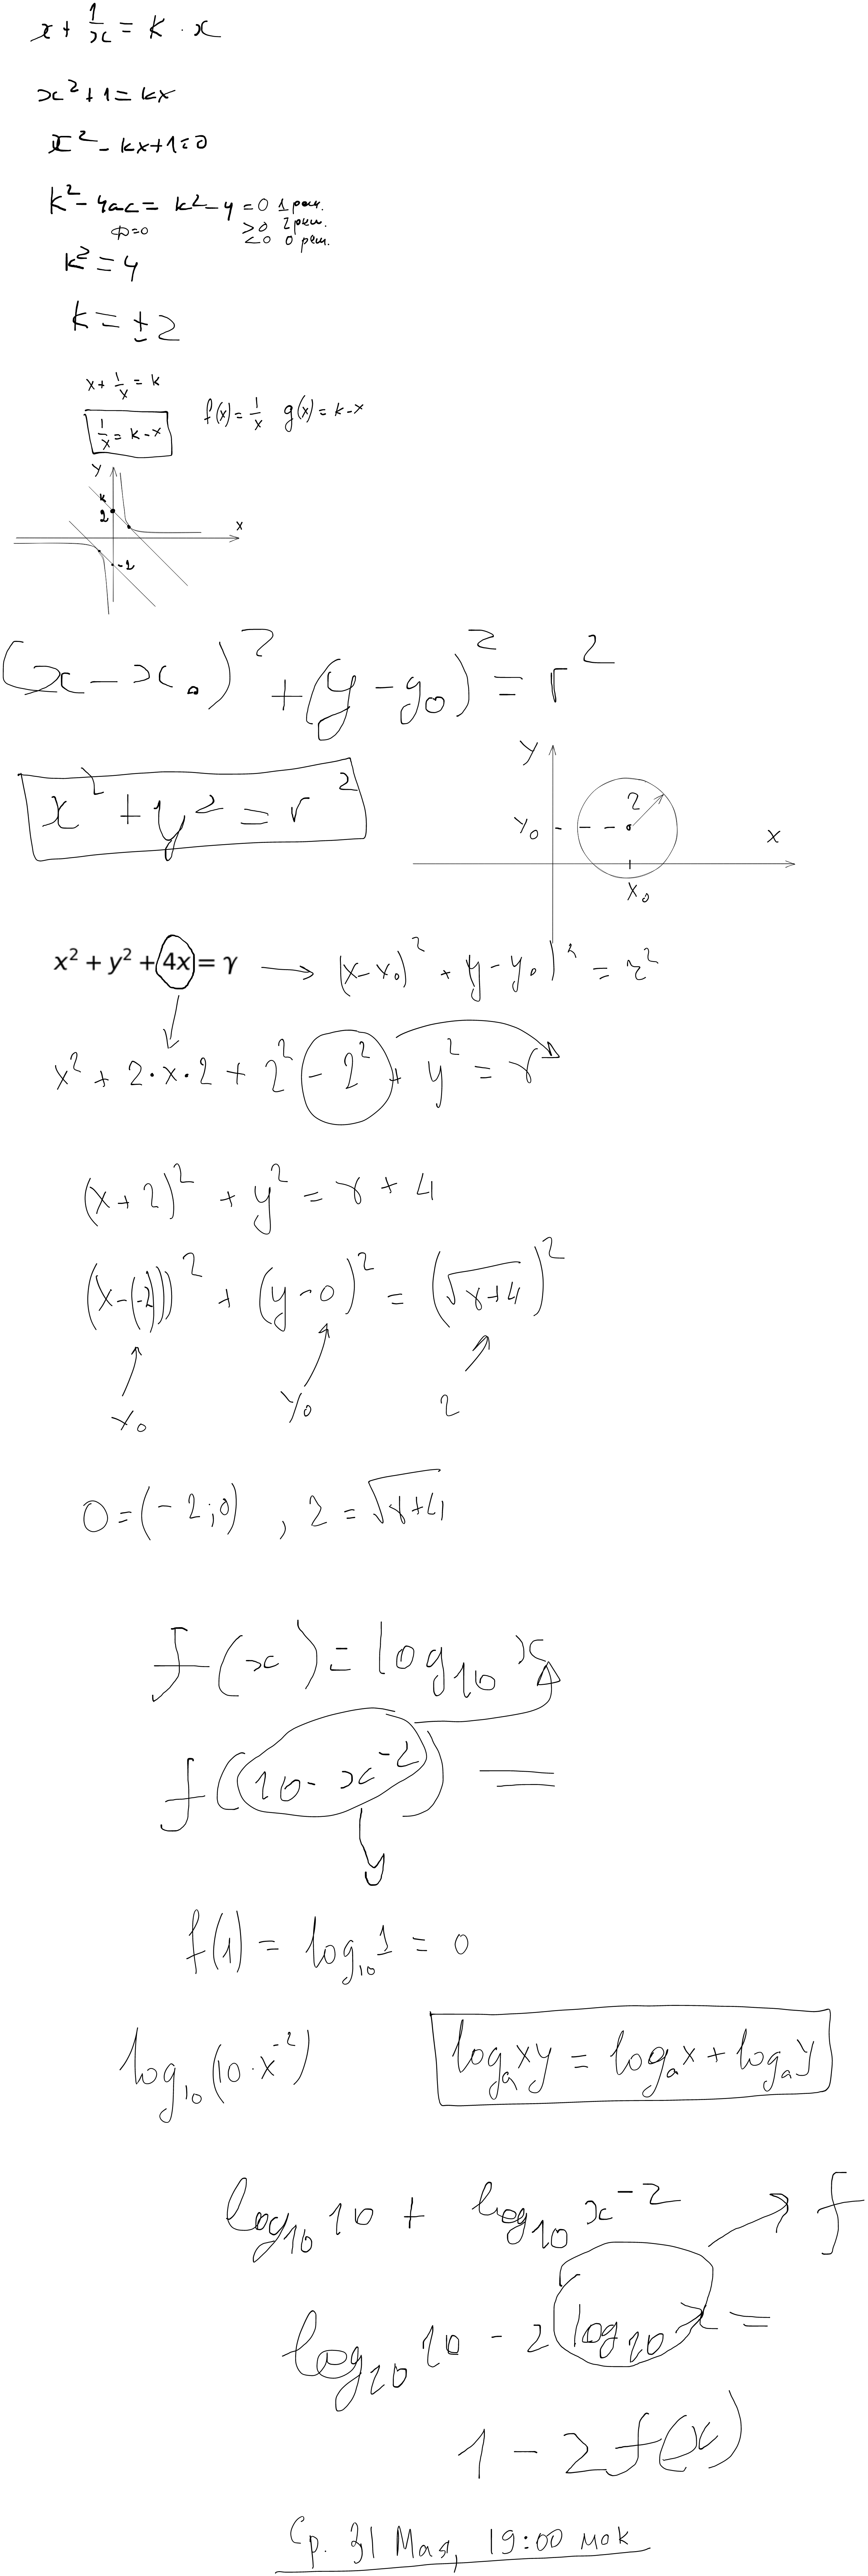 x + 1/x = k · x
x² + 1 = kx
x² - kx + 1 = 0
k² - 4ac = k² - 4 = 0 1 реш.
ф=0 > 0 2 реш.
< 0 0 реш.
k² = 4
k = ± 2
x + 1/x = k
1/x = k - x f(x) = 1/x g(x) = k - x
y
k
2
x
-2
(x - x₀)² + (y - y₀)² = r²
x² + y² = r²
y
y₀
r
x
x₀
x² + y² + 4x = γ → (x - x₀)² + y - y₀)² = r²
x² + 2·x·2 + 2² - 2² + y² = γ
(x + 2)² + y² = γ + 4
(x - (-2)))² + (y - 0)² = (√γ+4)²
x₀ y₀ r
O = (-2;0) , r = √γ+4
f(x) = log₁₀ x
f(10 · x⁻²) =
y
f(1) = log₁₀ 1 = 0
log₁₀(10·x⁻²) logₐxy = logₐx + logₐy
log₁₀ 10 + log₁₀ x⁻² → f
log₁₀ 10 - 2 log₁₀ x =
1 - 2 f(x)
Ср. 31 Мая, 19:00 мск